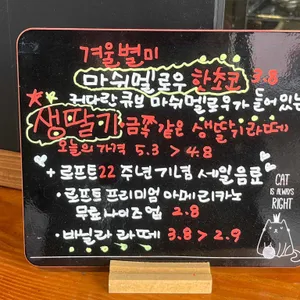 겨울별미
마쉬멜로우 한초코 3.8
커다란 큐브 마쉬멜로우가 들어있는
생딸기 금쪽같은 생딸기라떼
오늘의 가격 5.3 > 4.8
+ 로프트 22주년 기념 세일음료
· 로프트 프리미엄 아메리카노
무료 사이즈 업 2.8
· 바닐라 라떼 3.8 > 2.9
CAT
IS ALWAYS
RIGHT